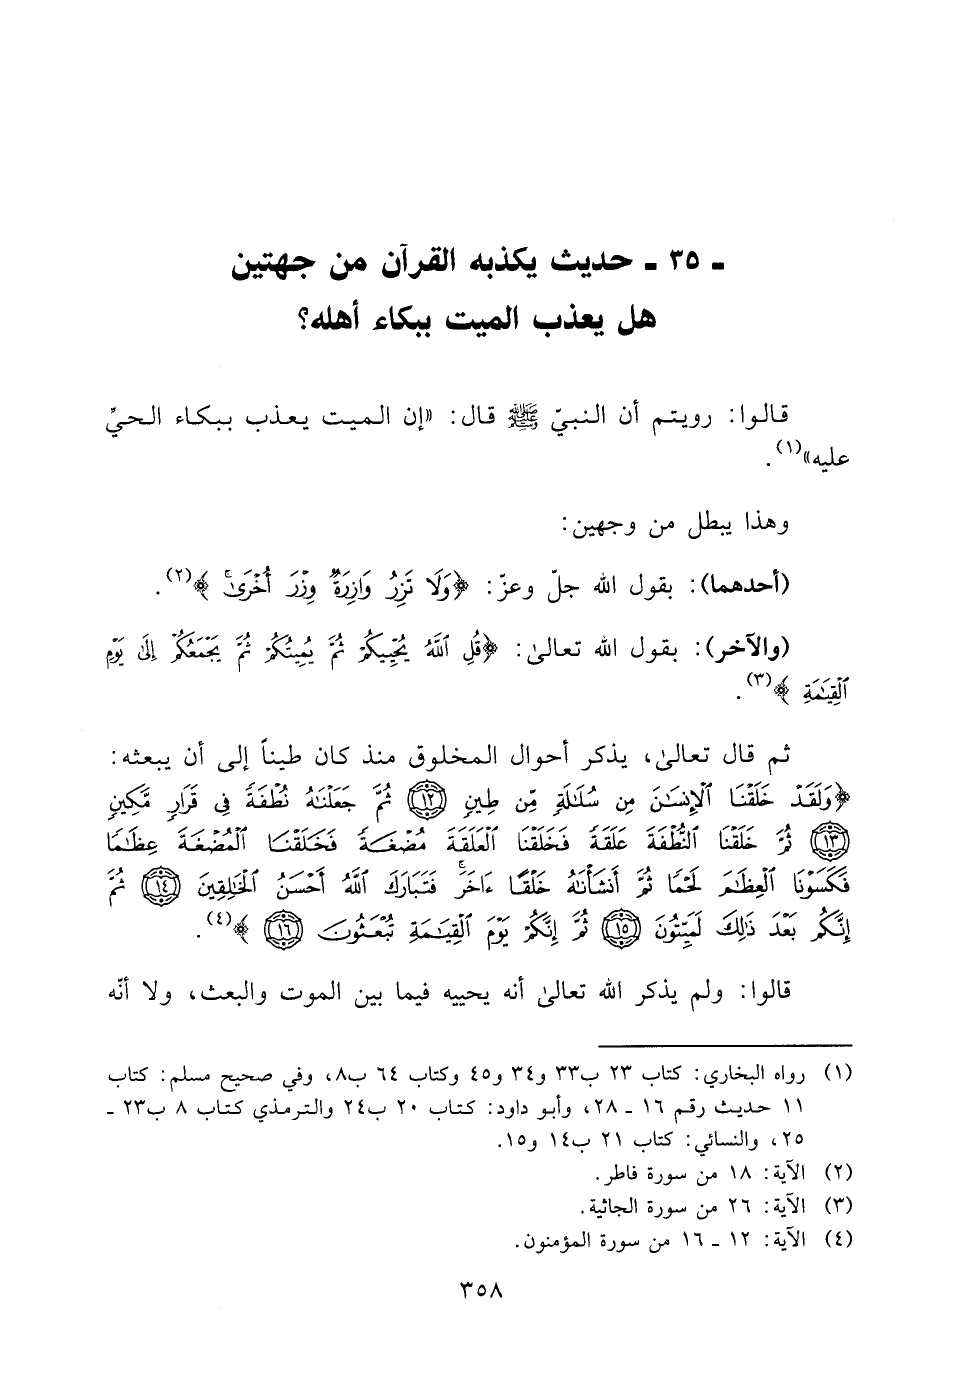 ـ ٣٥ ـ حديث يكذبه القرآن من جهتين
هل يعذب الميت ببكاء أهله؟
قالوا: رويتم أن النبيّ ﷺ قال: «إن الميت يعذب ببكاء الحيِّ
عليه»(١).
وهذا يبطل من وجهين:
(أحدهما): بقول الله جلّ وعزّ: ﴿وَلَا تَزِرُ وَازِرَةٌ وِزْرَ أُخْرَىٰ﴾(٢).
(والآخر): بقول الله تعالىٰ: ﴿قُلِ ٱللَّهُ يُحْيِيكُمْ ثُمَّ يُمِيتُكُمْ ثُمَّ يَجْمَعُكُمْ إِلَىٰ يَوْمِ
ٱلْقِيَٰمَةِ﴾(٣).
ثم قال تعالىٰ، يذكر أحوال المخلوق منذ كان طيناً إلى أن يبعثه:
﴿وَلَقَدْ خَلَقْنَا ٱلْإِنسَٰنَ مِن سُلَٰلَةٍ مِّن طِينٍ ١٢ ثُمَّ جَعَلْنَٰهُ نُطْفَةً فِى قَرَارٍ مَّكِينٍ
١٣ ثُمَّ خَلَقْنَا ٱلنُّطْفَةَ عَلَقَةً فَخَلَقْنَا ٱلْعَلَقَةَ مُضْغَةً فَخَلَقْنَا ٱلْمُضْغَةَ عِظَٰمًا
فَكَسَوْنَا ٱلْعِظَٰمَ لَحْمًا ثُمَّ أَنشَأْنَٰهُ خَلْقًا ءَاخَرَ ۚ فَتَبَارَكَ ٱللَّهُ أَحْسَنُ ٱلْخَٰلِقِينَ ١٤ ثُمَّ
إِنَّكُم بَعْدَ ذَٰلِكَ لَمَيِّتُونَ ١٥ ثُمَّ إِنَّكُمْ يَوْمَ ٱلْقِيَٰمَةِ تُبْعَثُونَ ١٦﴾(٤).
قالوا: ولم يذكر الله تعالىٰ أنه يحييه فيما بين الموت والبعث، ولا أنّه
(١) رواه البخاري: كتاب ٢٣ ب٣٣ و٣٤ و٤٥ وكتاب ٦٤ ب٨، وفي صحيح مسلم: كتاب
١١ حديث رقم ١٦ ـ ٢٨، وأبو داود: كتاب ٢٠ ب٢٤ والترمذي كتاب ٨ ب٢٣ ـ
٢٥، والنسائي: كتاب ٢١ ب١٤ و١٥.
(٢) الآية: ١٨ من سورة فاطر.
(٣) الآية: ٢٦ من سورة الجاثية.
(٤) الآية: ١٢ ـ ١٦ من سورة المؤمنون.
٣٥٨